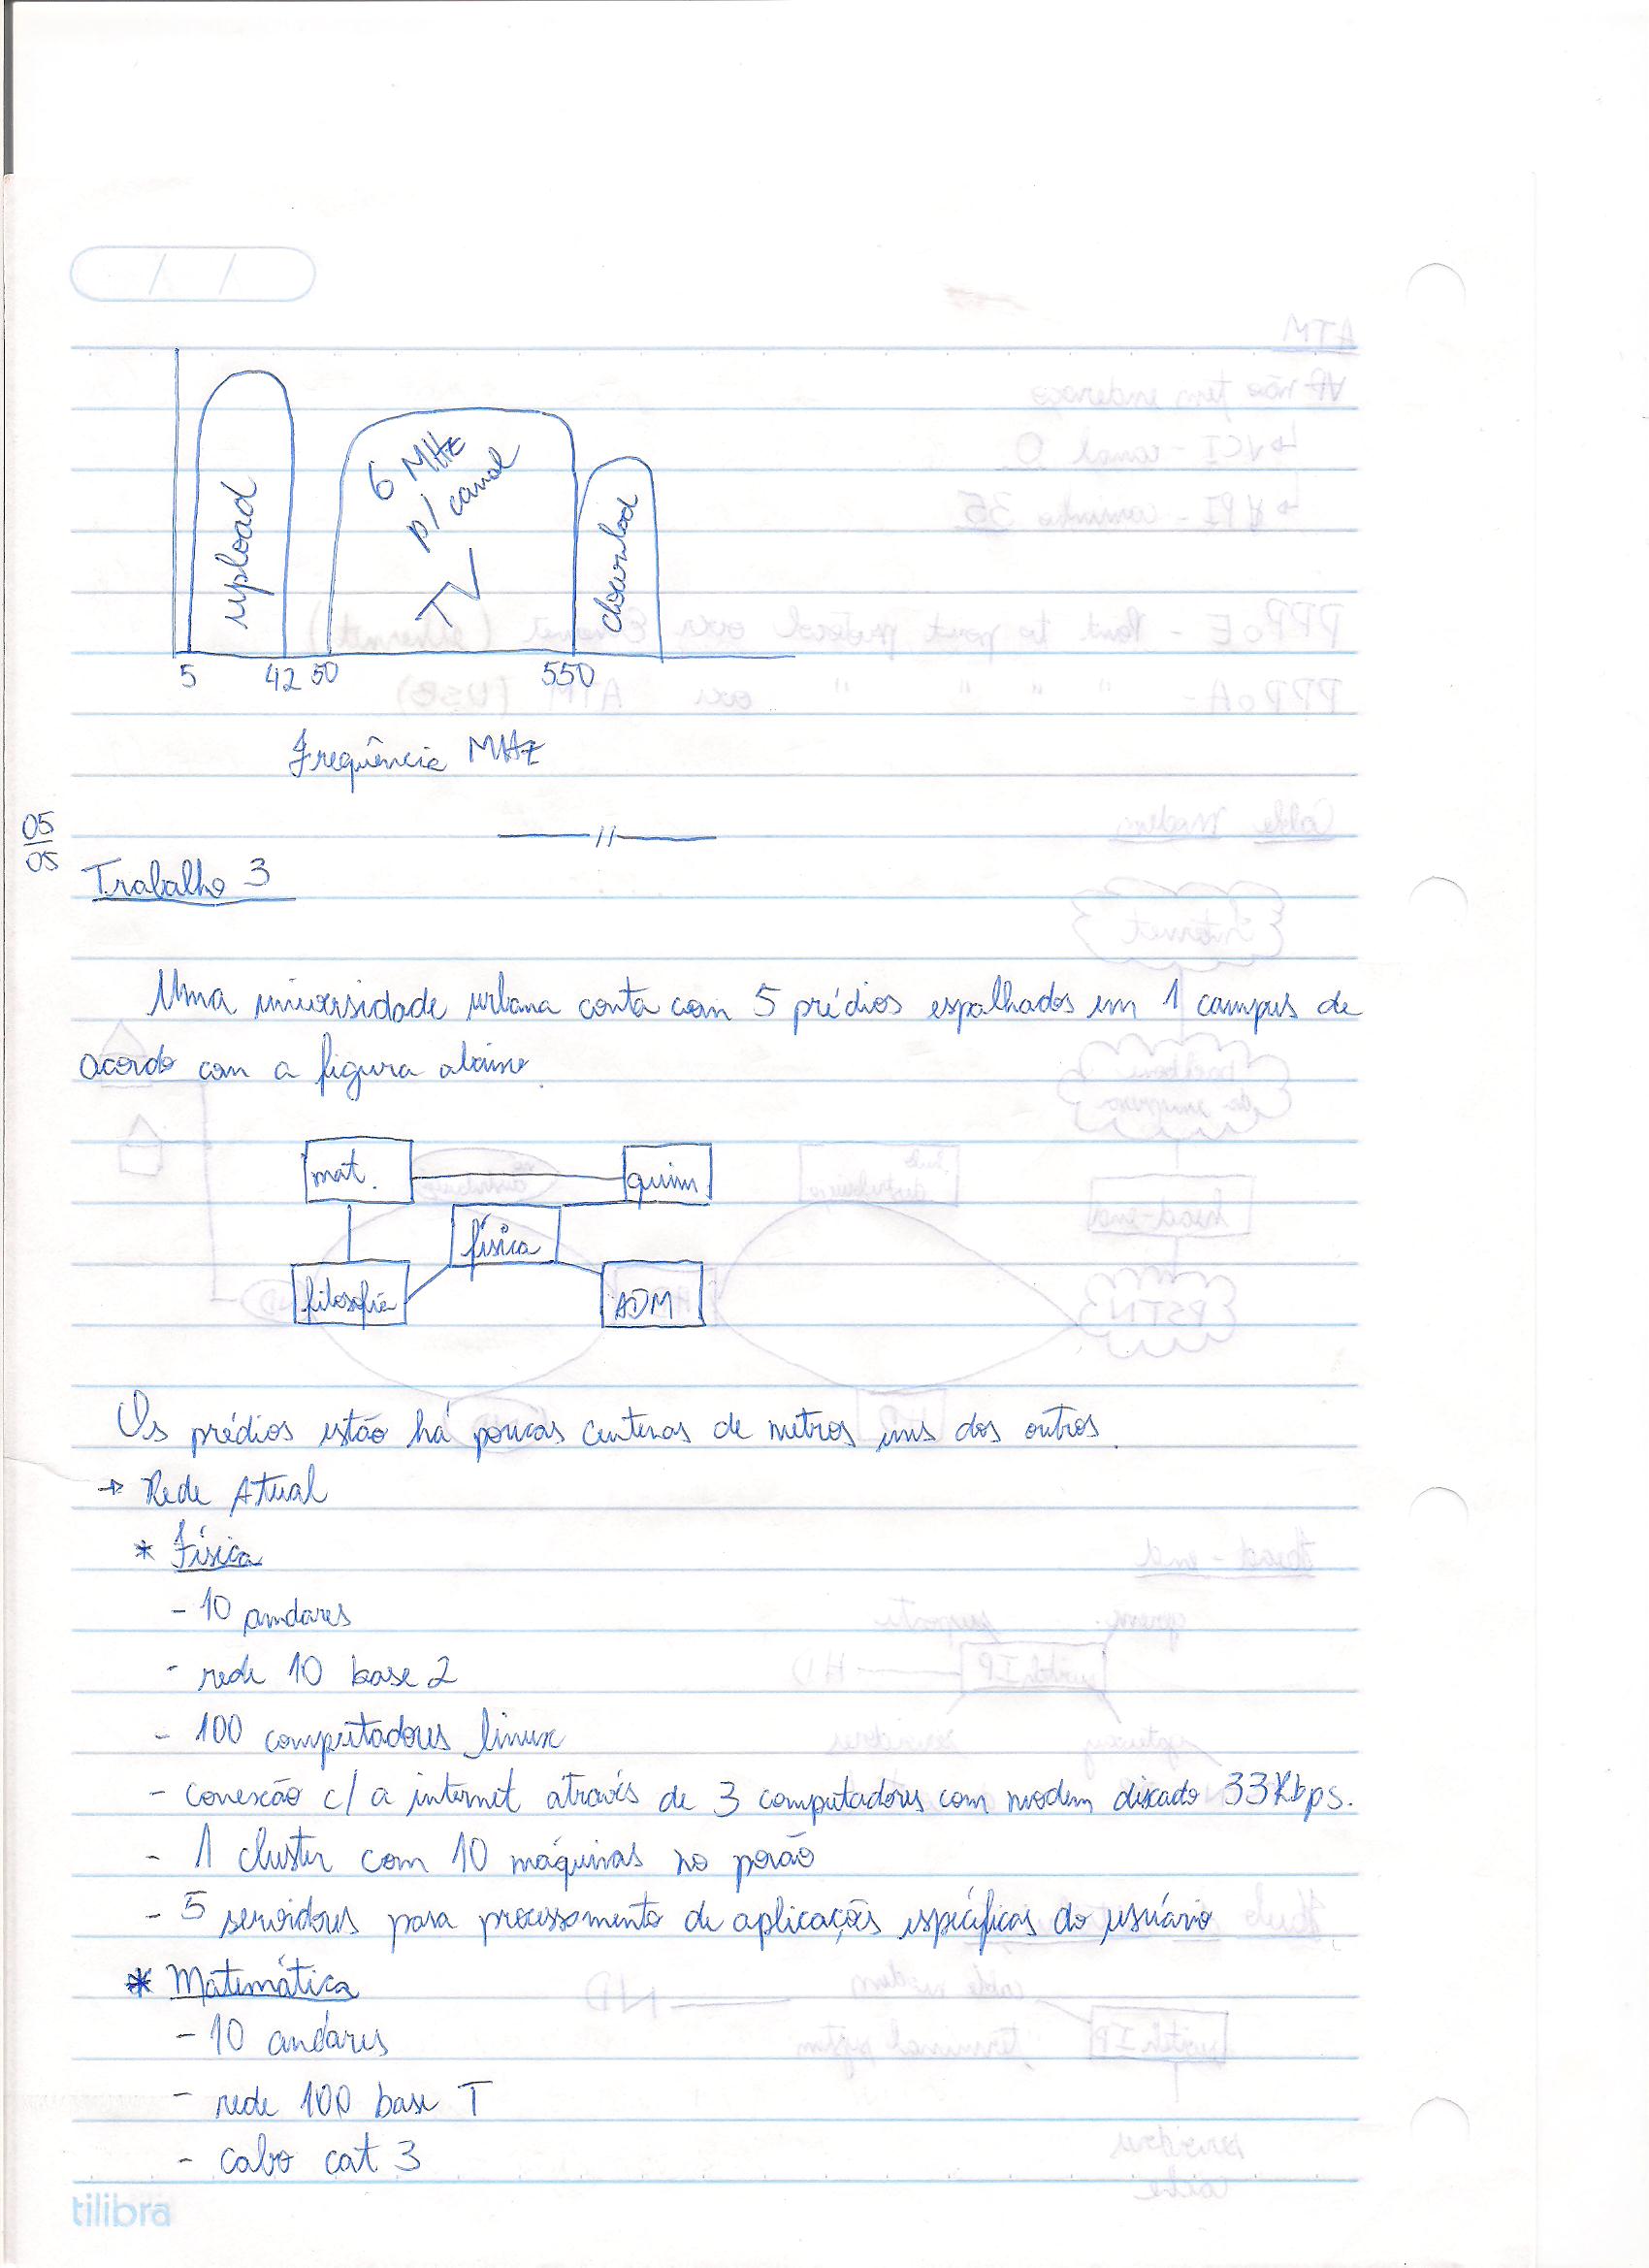 upload
6 MHz
p/ canal
TV
download
5 42 50 550
Frequência MHz
05
05
Trabalho 3
Uma universidade urbana conta com 5 prédios espalhados em 1 campus de
acordo com a figura abaixo.
mat. quim
física
filosofia ADM
Os prédios estão há poucas centenas de metros uns dos outros.
→ Rede Atual
* Física
- 10 andares
- rede 10 base 2
- 100 computadores linux
- conexão c/ a internet através de 3 computadores com modem discado 33Kbps.
- 1 cluster com 10 máquinas no porão
- 5 servidores para processamento de aplicações específicas do usuário
* Matemática
- 10 andares
- rede 100 base T
- cabo cat 3
tilibra